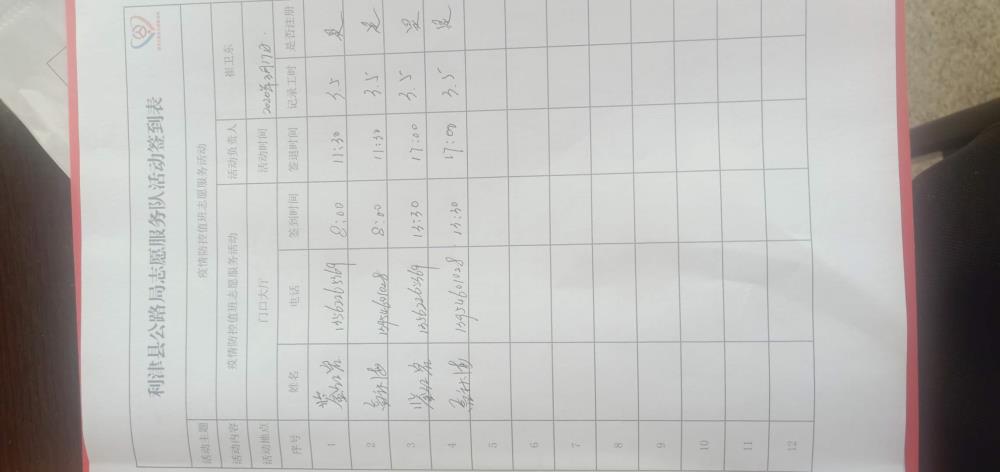 利津县公路局志愿服务队活动签到表
活动主题 疫情防控值班志愿服务活动
活动内容 疫情防控值班志愿服务活动 活动负责人 崔卫东
活动地点 门口大厅 活动时间 2020年2月17日
序号 姓名 电话 签到时间 签退时间 记录工时 是否注册
1 8:00 11:30 3.5 是
2 13954601028 8:00 11:30 3.5 是
3 13:30 17:00 3.5 是
4 13954601028 13:30 17:00 3.5 是
5
6
7
8
9
10
11
12